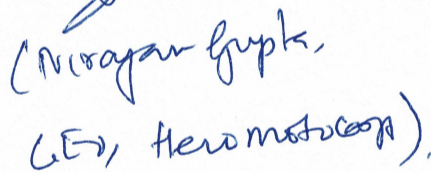 (Niranjan Gupta,
CEO, Heromotocorp).